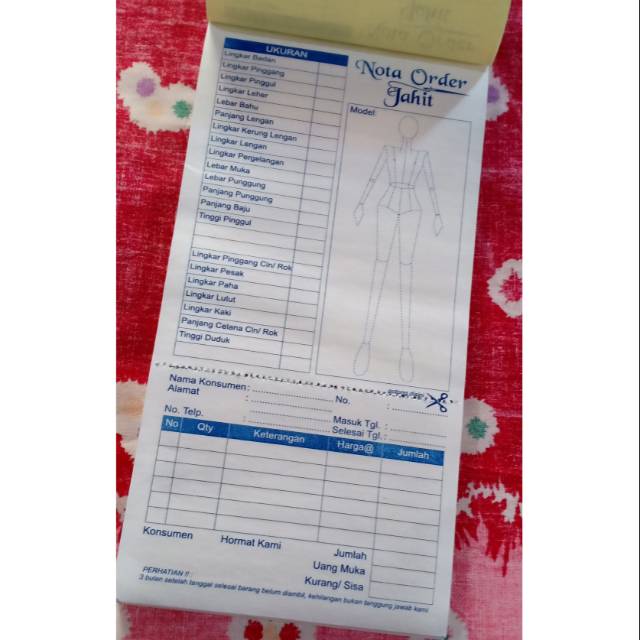 UKURAN
Lingkar Badan
Lingkar Pinggang
Lingkar Pinggul
Lingkar Leher
Lebar Bahu
Panjang Lengan
Lingkar Kerung Lengan
Lingkar Lengan
Lingkar Pergelangan
Lebar Muka
Lebar Punggung
Panjang Punggung
Panjang Baju
Tinggi Pinggul
Lingkar Pinggang Cin/ Rok
Lingkar Pesak
Lingkar Paha
Lingkar Lutut
Lingkar Kaki
Panjang Celana Cin/ Rok
Tinggi Duduk
Nota Order
Jahit
Model:
Nama Konsumen:
No. :
Alamat :
Masuk Tgl. :
No. Telp. :
Selesai Tgl. :
No Qty Keterangan Harga@ Jumlah
Konsumen Hormat Kami Jumlah
Uang Muka
Kurang/ Sisa
PERHATIAN !! :
3 bulan setelah tanggal selesai barang belum diambil, kehilangan bukan tanggung jawab kami